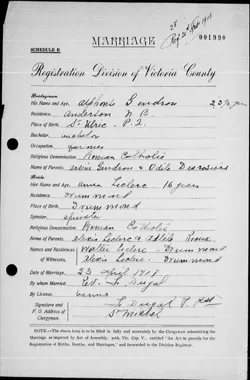 28
Reg 24 April 1918
001990
MARRIAGE
SCHEDULE B
Registration Division of Victoria County
Bridegroom
His Name and Age, Alphonse Gendron 23 ½ years
Residence Anderson N. B.
Place of Birth, St Ulric. P.Q.
Bachelor bachelor
Occupation farmer
Religious Denomination Roman Catholic
Name of Parents, Gendron & Odile Desrosiers
Bride
Her Name and Age, Anna Leclerc 16 years
Residence Drummond
Place of Birth Drummond
Spinster spinster
Religious Denomination Roman Catholic
Name of Parents, Alexis Leclerc & Adele Rioux
Names and Residences Walter Leclerc Drummond
of Witnesses, Alexis Leclerc Drummond
Date of Marriage, 23 April 1918
By whom Married, Rev. L. Dugal
By License, banns
Signature and L. Dugal P.
P. O. Address of St Michel
Clergyman.
NOTE.—The above form is to be filled in fully and accurately by the Clergyman solemnizing the Marriage as required by Act of Assembly, entitled "An Act to provide for the Registration of Births, Deaths, and Marriages," and forwarded to the Division Registrar.